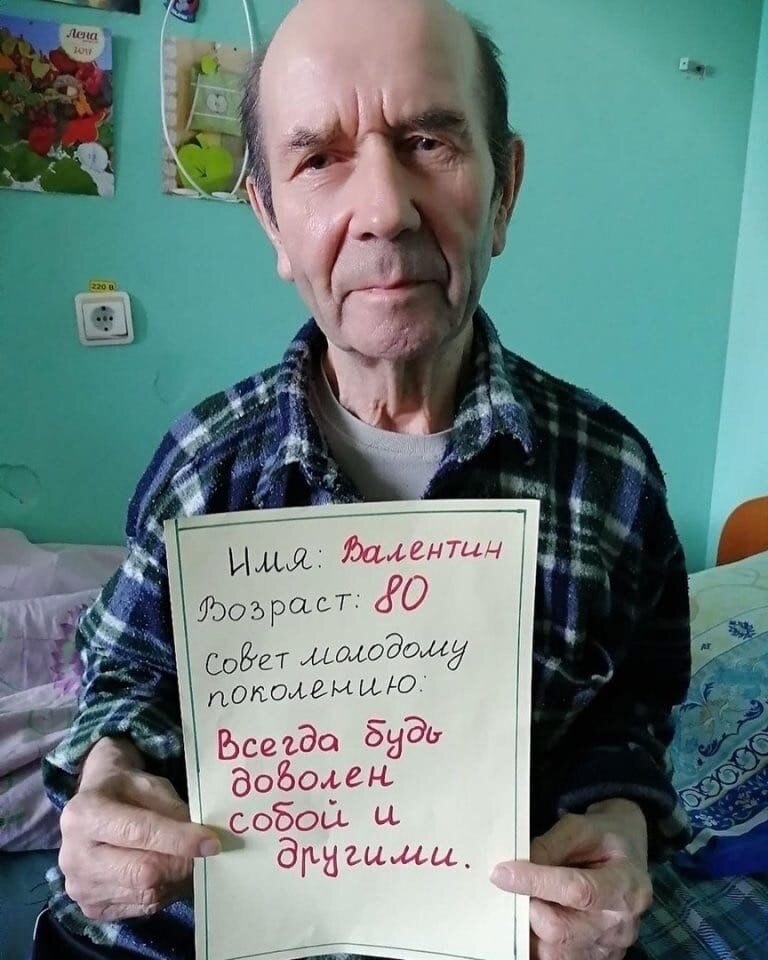 Лена
2017
220 В
Имя: Валентин
Возраст: 80
Совет молодому
поколению:
Всегда будь
доволен
собой и
другими.